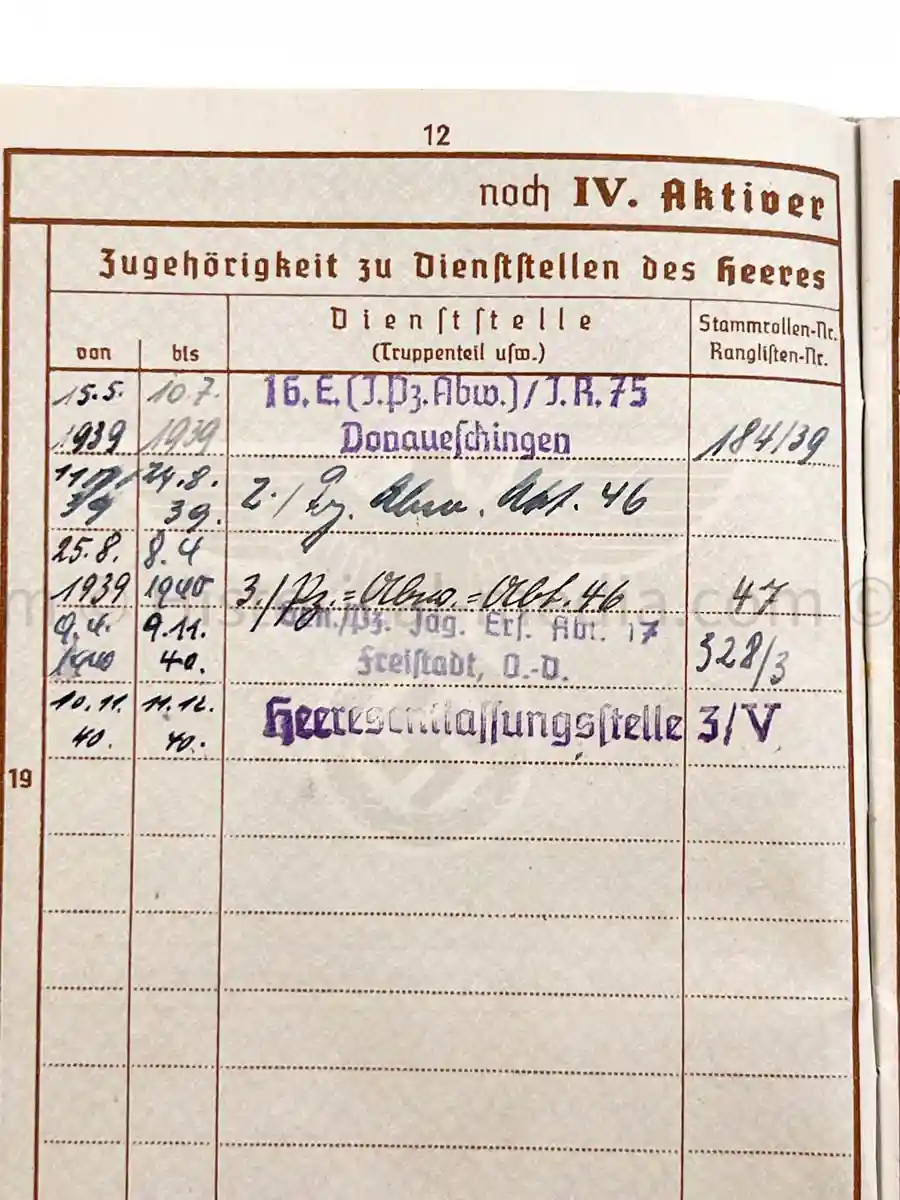 12
noch IV. Aktiver
Zugehörigkeit zu Dienststellen des Heeres
von
bis
Dienststelle
(Truppenteil usw.)
Stammrollen-Nr.
Ranglisten-Nr.
15.5. 10.7. 16.E.(I.Pz.Abw.)/I.R.75
1939 1939 Donaueschingen 184/39
24.8. 2./Pz. Abw. Abt. 46
39 39.
25.8. 8.4
1939 1940 3./Pz.=Abw.=Abt.46 47
9.4. 9.11. /Pz. Jäg. Ers. Abt. 17
1940 40. Freistadt, O.-D. 328/3
10.11. 11.12. Heeresentlassungsstelle 3/V
40. 40.
19